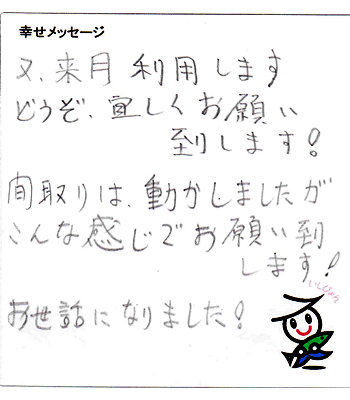 幸せメッセージ
又、来月 利用します
どうぞ、宜しくお願い
到します!
間取りは、動かしましたが
こんな感じでお願い到
します!
お世話になりました!